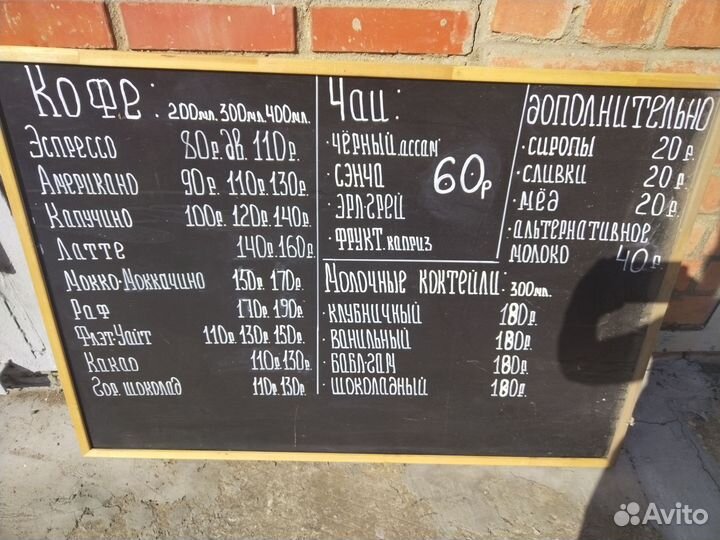 Кофе: 200мл. 300мл. 400мл.
Эспрессо 80р. дв. 110р.
Американо 90р. 110р. 130р.
Капучино 100р. 120р. 140р.
Латте 140р. 160р.
Мокко-Моккачино 150р. 170р.
Раф 170р. 190р.
Флэт-Уайт 110р. 130р. 150р.
Какао 110р. 130р.
Гор. шоколад 110р. 130р.
Чаи:
·чёрный ассам
·сэнча 60р
·эрл-грей
·фрукт. каприз
Дополнительно
·сиропы 20р.
·сливки 20р.
·мёд 20р.
·альтернативное
молоко 40р.
Молочные коктейли: 300мл.
·клубничный 180р.
·ванильный 180р.
·бабл-гам 180р.
·шоколадный 180р.
Avito